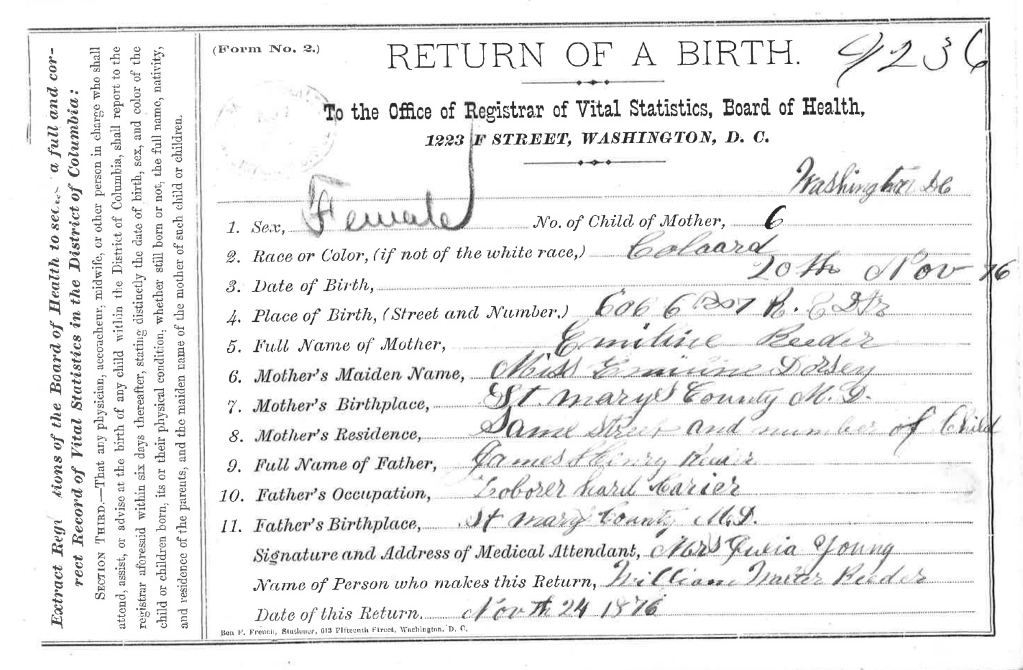 Extract Regulations of the Board of Health to secure a full and cor-
rect Record of Vital Statistics in the District of Columbia:
SECTION THIRD.—That any physician, accoucheur, midwife, or other person in charge who shall
attend, assist, or advise at the birth of any child within the District of Columbia, shall report to the
registrar aforesaid within six days thereafter, stating distinctly the date of birth, sex, and color of the
child or children born, its or their physical condition, whether still born or not, the full name, nativity,
and residence of the parents, and the maiden name of the mother of such child or children.
(Form No. 2.)
RETURN OF A BIRTH. 9236
To the Office of Registrar of Vital Statistics, Board of Health,
1223 F STREET, WASHINGTON, D. C.
Washington DC
1. Sex, Female No. of Child of Mother, 6
2. Race or Color, (if not of the white race,) Coloard
3. Date of Birth, 20th Nov 76
4. Place of Birth, (Street and Number,) 606
5. Full Name of Mother, Emiline Reeder
6. Mother's Maiden Name, Miss Emiline Dorsey
7. Mother's Birthplace, St. mary's County M.D.
8. Mother's Residence, Same Street and number of Child
9. Full Name of Father, James Henry Reeder
10. Father's Occupation, Loborer hard carier
11. Father's Birthplace, St mary County M.D.
Signature and Address of Medical Attendant, Mrs Julia Young
Name of Person who makes this Return, William Walter Reeder
Date of this Return. Novth 24 1876
Ben F. French, Stationer, 613 Fifteenth Street, Washington, D. C.